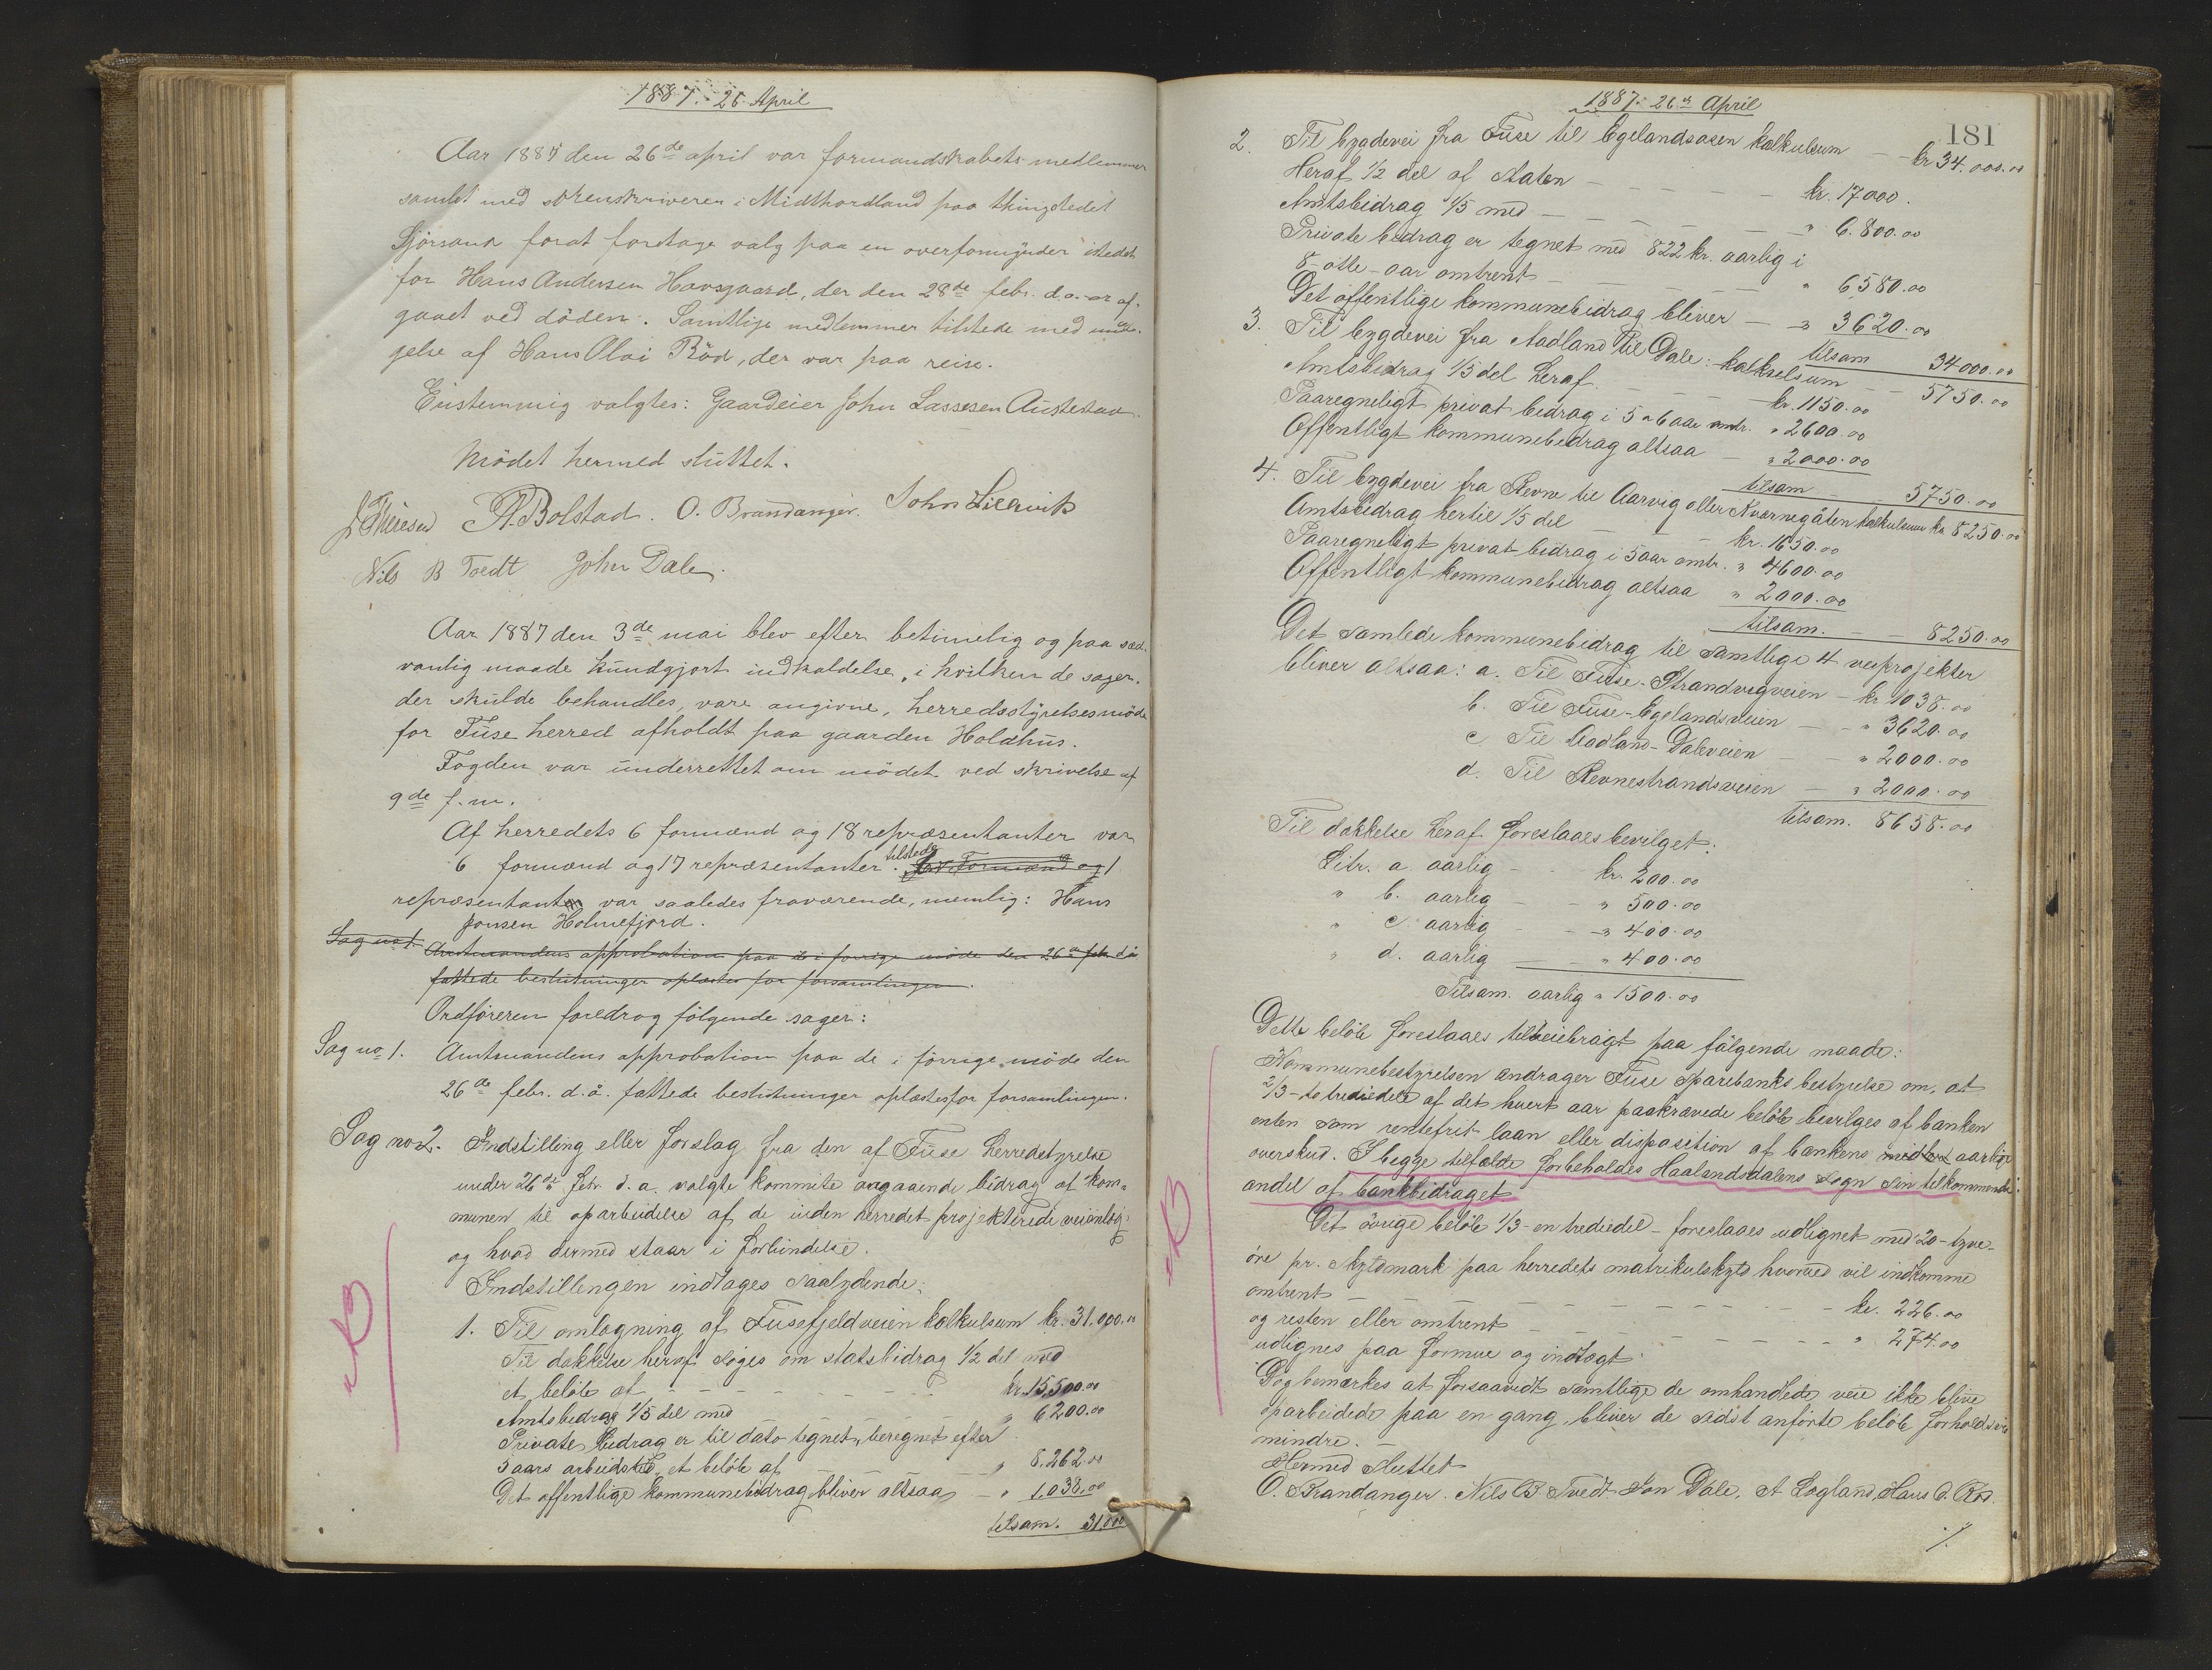 1887. 26 April
Aar 1887 den 26de april var formandskabets medlemmer
samlet med sorenskriveren i Midthordland paa thingstedet
Sjörsand forat foretage valg paa en overformynder istedet
for Hans Andersen Havsgaard, der den 28de febr. d.a. er af-
gaaet ved döden. Samtlige medlemmer tilstede med undta-
gelse af Hans Olai Röd, der var paa reise.
Enstemmig valgtes: Gaardeier John Lassesen Austestad.
Mödet hermed sluttet.
A. Bolstad. O. Brandanger. John Lilevik
Nils B Tvedt John Dale.
Aar 1887 den 3de mai blev efter betimelig og paa sæd-
vanlig maade kundgjort indkaldelse, i hvilken de sager,
der skulde behandles, vare angivne, herredsstyrelsesmöde
for Fuse herred afholdt paa gaarden Holdhus.
Fogden var underrettet om mödet ved skrivelse af
9de f.m.
Af herredets 6 formænd og 18 repræsentanter var
6 formænd og 17 repræsentanter tilstede. formænd og 1
repræsentanter var saaledes fraværende, nemlig: Hans
Jonsen Holmefjord.
Sag no 1. Amtmandens approbation paa de i forrige möde den 26de febr. d.å
fattede beslutninger oplæstes for forsamlingen.
Ordføreren foredrog følgende sager:
Sag no 1. Amtmandens approbation paa de i förrige möde den
26de febr. d.å. fattede beslutninger oplæstes for forsamlingen.
Sag no 2. Indstilling eller forslag fra den af Fuse herredstyrelse
under 26de febr. d.a. valgte kommite angaaende bidrag af kom-
munen til oparbeidelse af de inden herredet projekterede veianlæg
og hvad dermed staar i forbindelse.
Indstillingen indtages saalydende:
1. Til omlægning af Fusefjeldveien kalkulsum kr. 31.000.00
Til dækkelse heraf søges om statsbidrag 1/2 del med
et beløb af - - - kr. 15,500.00
Amtsbidrag 1/5 del med - - - " 6200.00
Private bidrag er til dato tegnet, beregnet efter
5 aars arbeidstid, et beløb af - - - " 8.262.00
Det offentlige kommunebidrag bliver altsaa - " 1.038.00
tilsam. 31.000
1887. 26de April
181
2. Til bygdevei fra Fuse til Egelandsosen kalkulsum - - kr 34.000.00
Heraf 1/2 del af Staten - - - kr. 17000.
Amtsbidrag 1/5 med - - - " 6.800.00
Private bidrag er tegnet med 822 kr. aarlig i
8-otte-aar omtrent - - - " 6580.00
Det offentlige kommunebidrag bliver - " 3620.00
tilsam 34000.00
3. Til bygdevei fra Aadland til Dale: kalkulsum - - 5750.00
Amtsbidrag 1/5 del heraf. - - - kr. 1150.00
Paaregneligt privat bidrag i 5 a 6 aar omtr. " 2600.00
Offentligt kommunebidrag altsaa - " 2000.00
tilsam - - 5750.00
4. Til bygdevei fra Revne til Aarvig eller Kvernegåten kalkulsum kr 8250.00
Amtsbidrag hertil 1/5 del - - - kr. 1650.00
Paaregneligt privat bidrag i 5 aar omtr. " 4600.00
Offentligt kommunebidrag altsaa " 2000.00
tilsam. - - 8250.00
Det samlede kommunebidrag til samtlige 4 veiprojekter
bliver altsaa: a. Til Fuse-Strandvigveien - kr 1038.00
b. Til Fuse-Egelandsveien - - " 3620.00
c. Til Aadland-Daleveien - - " 2000.00
d. Til Revnestrandsveien - " 2000.00
tilsam. 8658.00
Til dækkelse heraf foreslaaes bevilget:
Litr. a. aarlig - - kr. 200.00
" b. aarlig - - " 500.00
" c. aarlig - - " 400.00
" d. aarlig - - " 400.00
Tilsam. aarlig " 1500.00
Dette beløb foreslaaes tilveiebragt paa følgende maade:
Kommunebestyrelsen andrager Fuse sparebanks bestyrelse om, at
2/3-to trediedele af det hvert aar paakrævede beløb bevilges af banken
enten som rentefrit laan eller disposition af bankens midler aarlige
overskud. I begge tilfælde forbeholdes Haalandsdalens sogn sin tilkommende
andel af bankbidraget.
Det övrige beløb 1/3-en trediedel-foreslaaes udlignet med 20-tyve-
öre pr. skyldmark paa herredets matrikulskyld hvorved vil indkomme
omtrent - - - kr. 226.00
og resten eller omtrent - - - " 274.00
udlignes paa formue og indtægt.
Dog bemærkes at forsaavidt samtlige de omhandlede veie ikke blive
oparbeidede paa en gang, bliver de sidst anførte beløb forholdsvis
mindre.
Hermed sluttet
O. Brandanger. Nils B. Tvedt Jon Dale, A Løgland, Hans O. Rød.